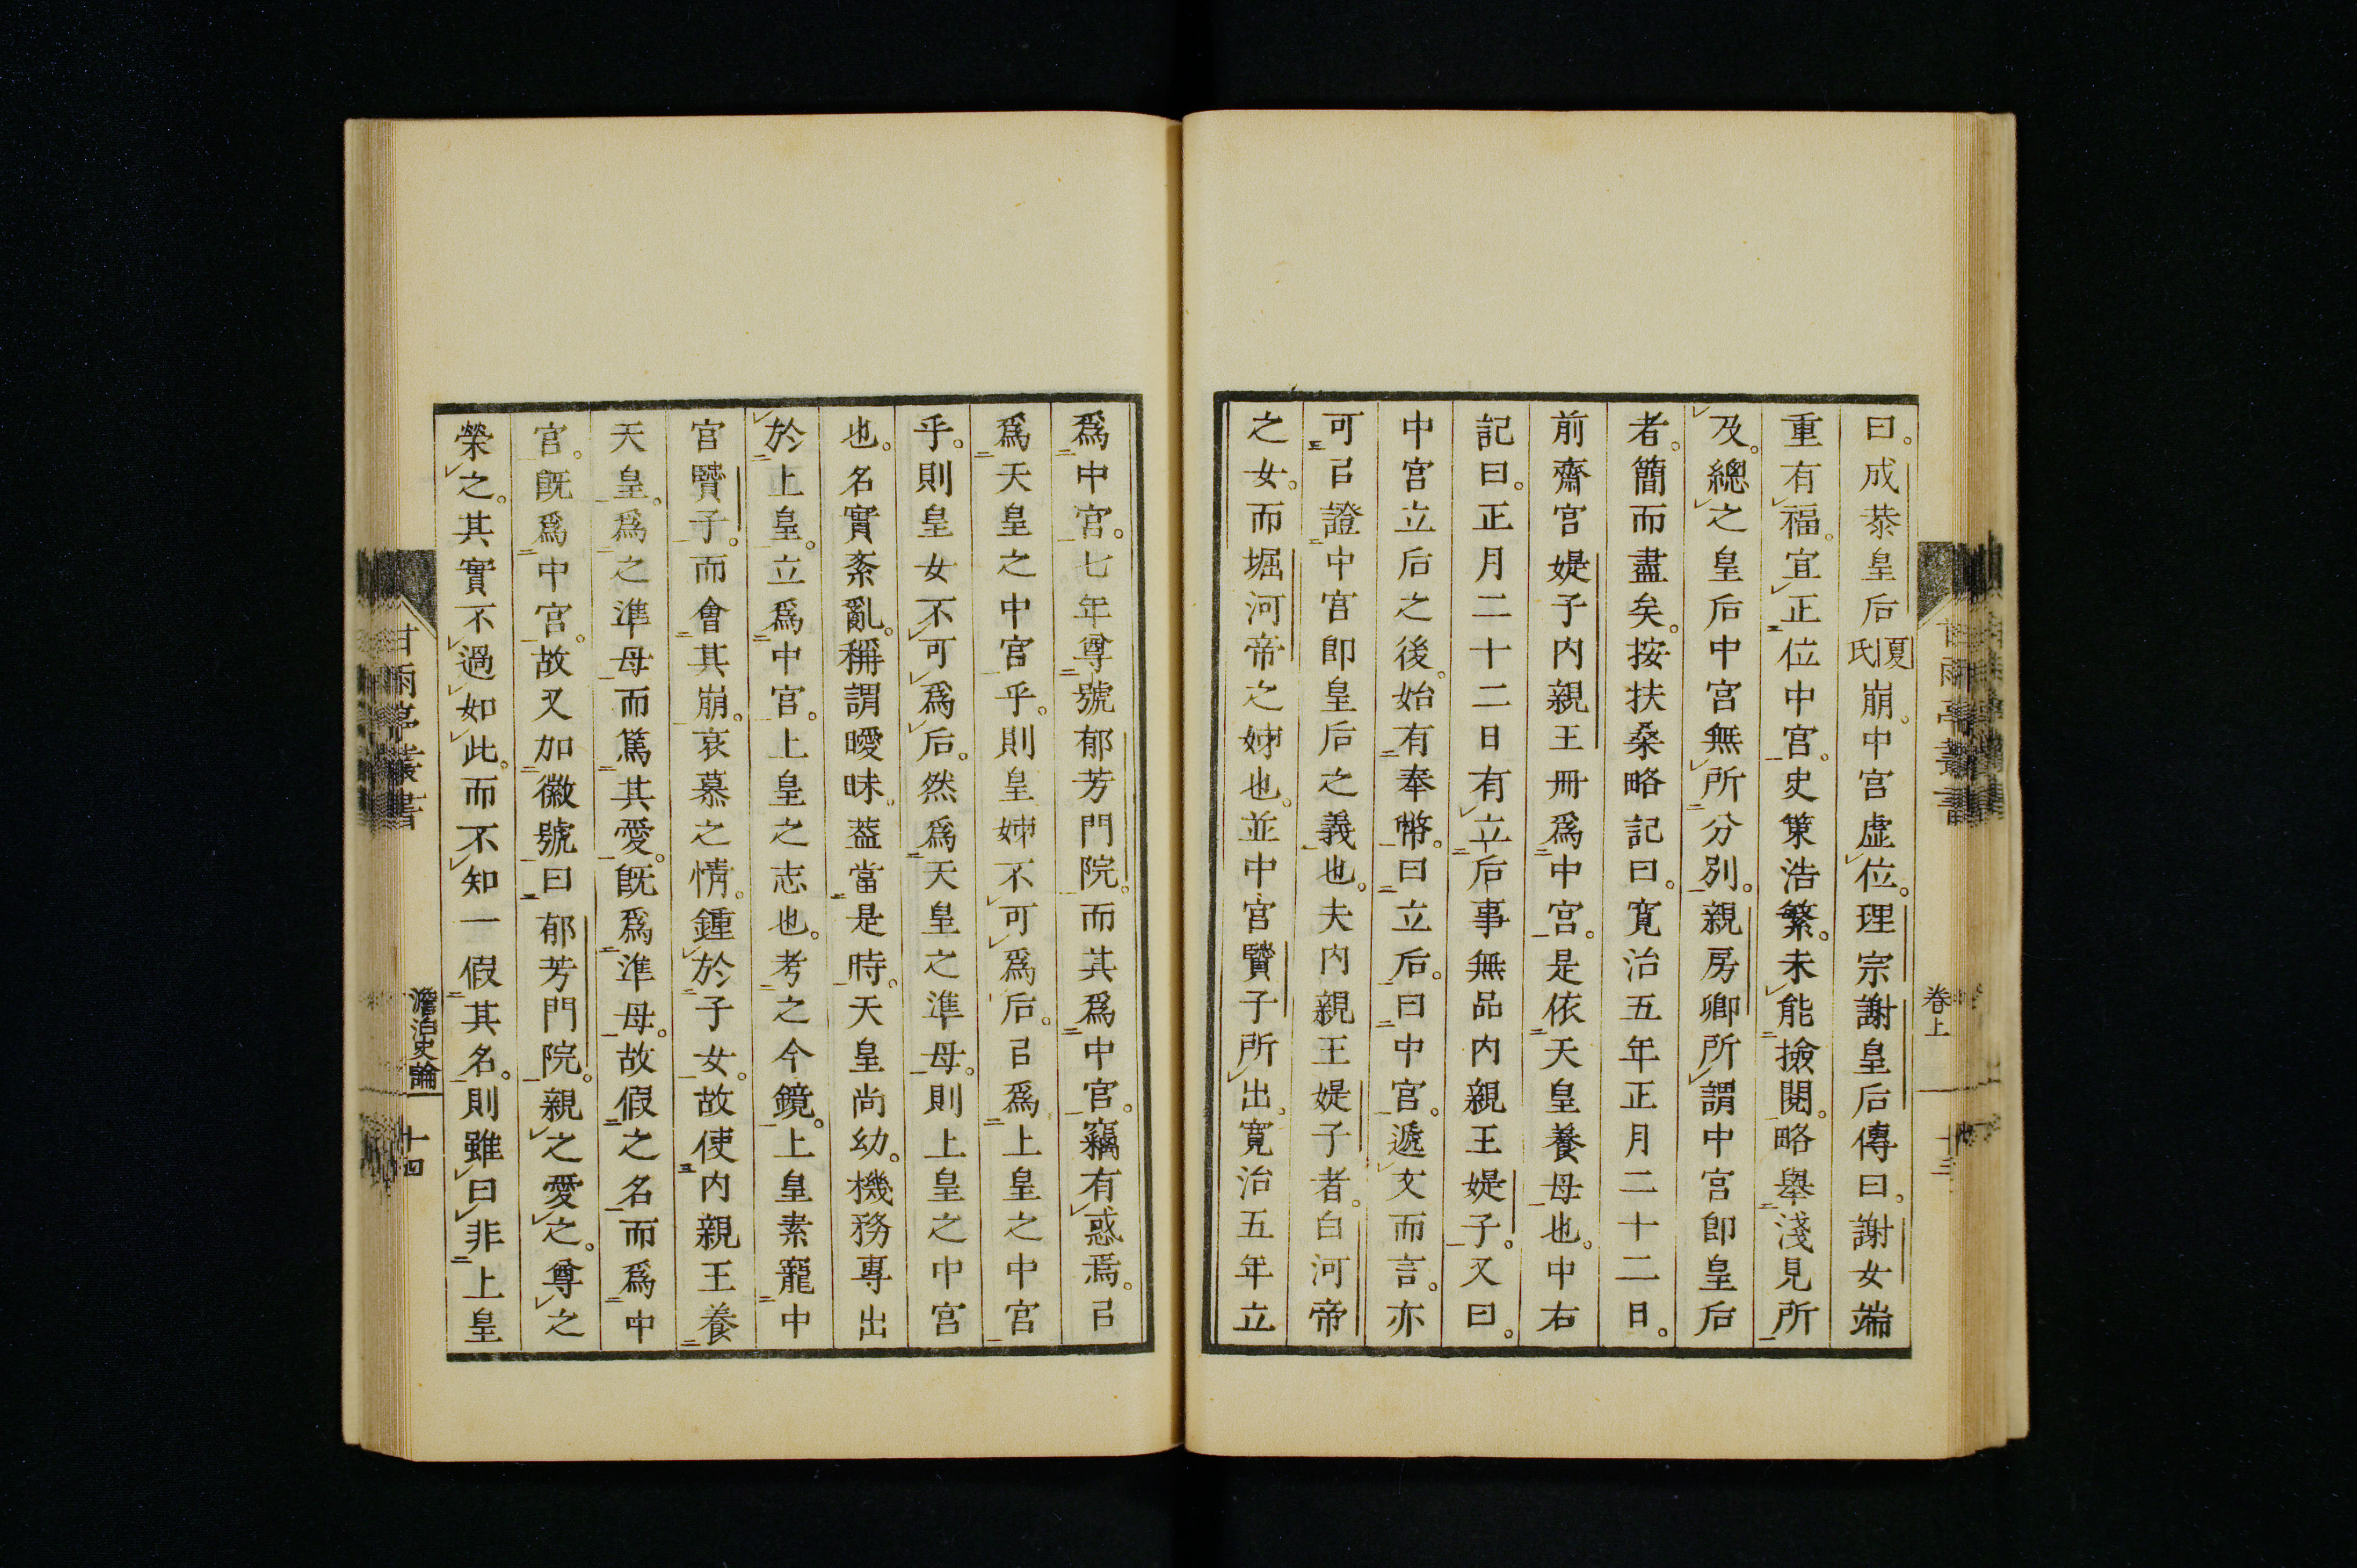 曰。成恭皇后夏氏崩。中宮虛位。理宗謝皇后傳曰。謝女端
重有福。宜正位中宮。史策浩繁。未能撿閱。略舉淺見所
及。總之皇后中宮無所分別。親房卿所謂中宮卽皇后
者。簡而盡矣。按扶桑略記曰。寬治五年正月二十二日。
前齋宮媞子內親王冊爲中宮。是依天皇養母也。中右
記曰。正月二十二日有立后事無品內親王媞子。又曰。
中宮立后之後。始有奉幣。曰立后。曰中宮。遞文而言。亦
可㠯證中宮卽皇后之義也。夫內親王媞子者。白河帝
之女。而堀河帝之姊也。並中宮賢子所出。寬治五年立
卷上
十三
爲中宮。七年尊號郁芳門院。而其爲中宮。竊有惑焉。㠯
爲天皇之中宮乎。則皇姊不可爲后。㠯爲上皇之中宮
乎。則皇女不可爲后。然爲天皇之準母。則上皇之中宮
也。名實紊亂。稱謂曖昧。蓋當是時。天皇尚幼。機務專出
於上皇。立爲中宮。上皇之志也。考之今鏡。上皇素寵中
宮賢子。而會其崩。哀慕之情。鍾於子女。故使內親王養
天皇。爲之準母而篤其愛。旣爲準母。故假之名而爲中
宮。旣爲中宮。故又加徽號曰郁芳門院。親之愛之。尊之
榮之。其實不過如此。而不知一假其名。則雖曰非上皇
甘雨亭叢書
澹泊史論
十四